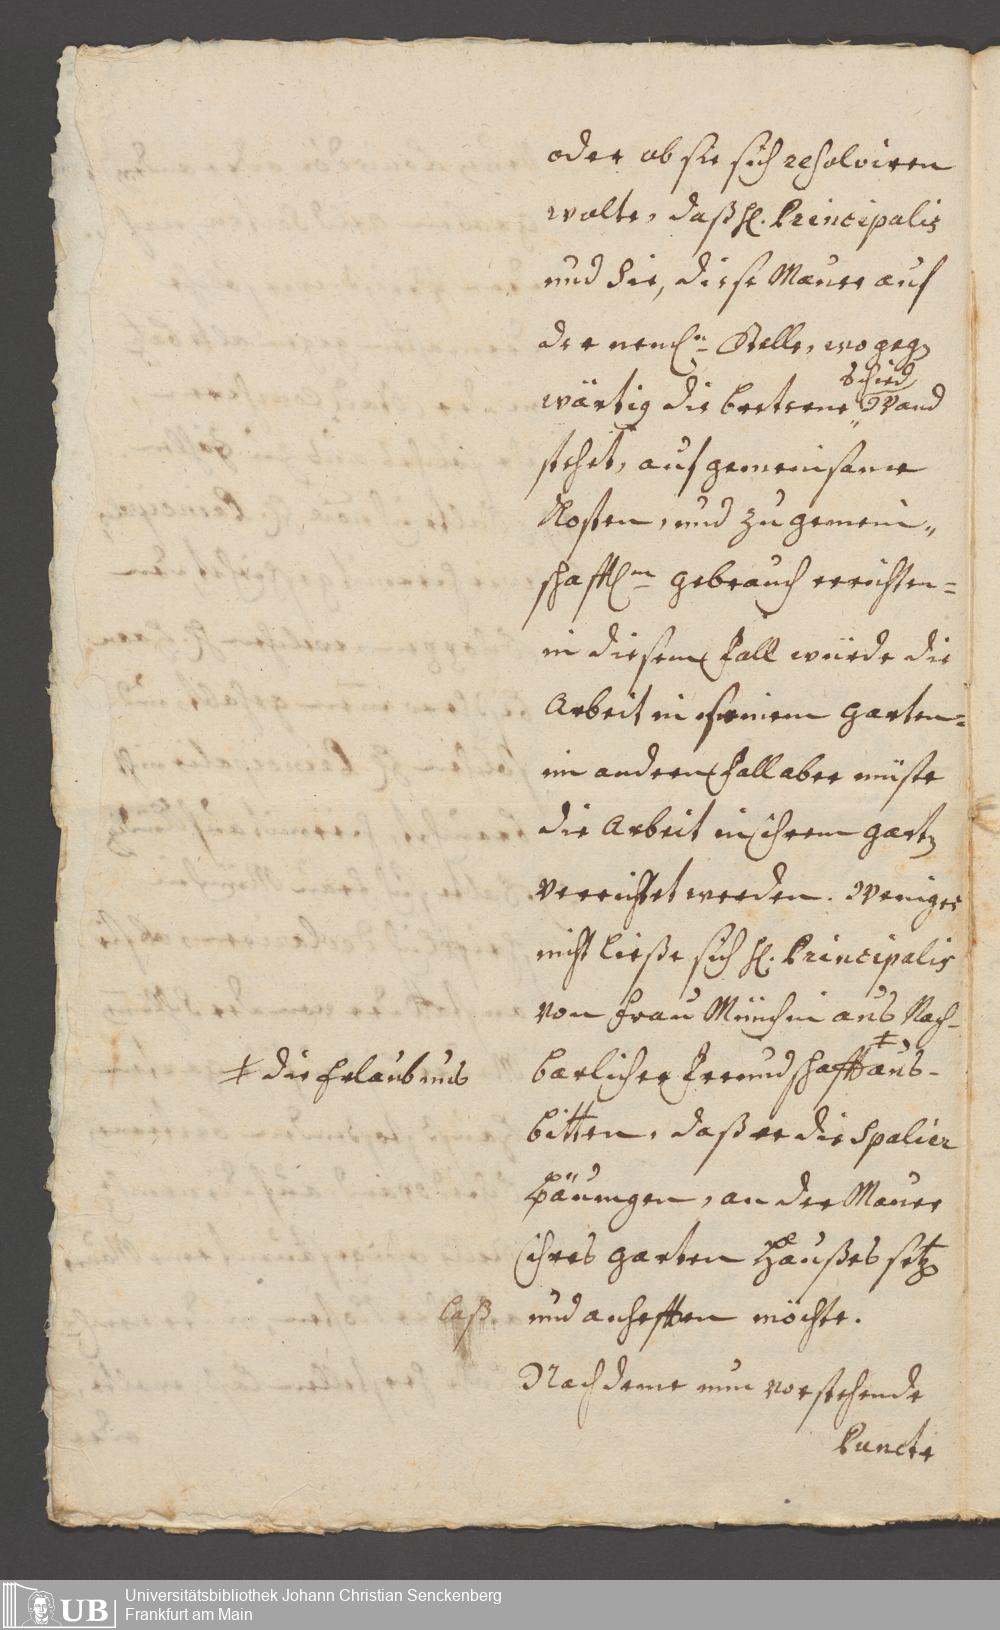 oder ob sie sich resolviren
wolte, daß H. Principalis
und Sie, diese Mauer auf
der neml.n Stelle, wo geg
wärtig die breterne Schied„Wand
stehet, auf gemeinsame
Kosten, und zu gemein„
schafftl.m gebrauch errichten=
in diesem Fall würde die
Arbeit in seinem garten=
im andern Fall aber müste
die Arbeit in ihrem gart
verrichtet werden. Weniger
nicht ließe sich H. Principalis
von Frau Münchin aus Nach-
barlicher Freundschafft ǂ aus-
ǂ die Erlaubnus
bitten, daß er die Spalier
Bäumgen, an der Mauer
ihres garten Haußes setz
und anhefften möchte.
laß.
Nachdeme nun vorstehende
Puncte
UB
Universitätsbibliothek Johann Christian Senckenberg
Frankfurt am Main